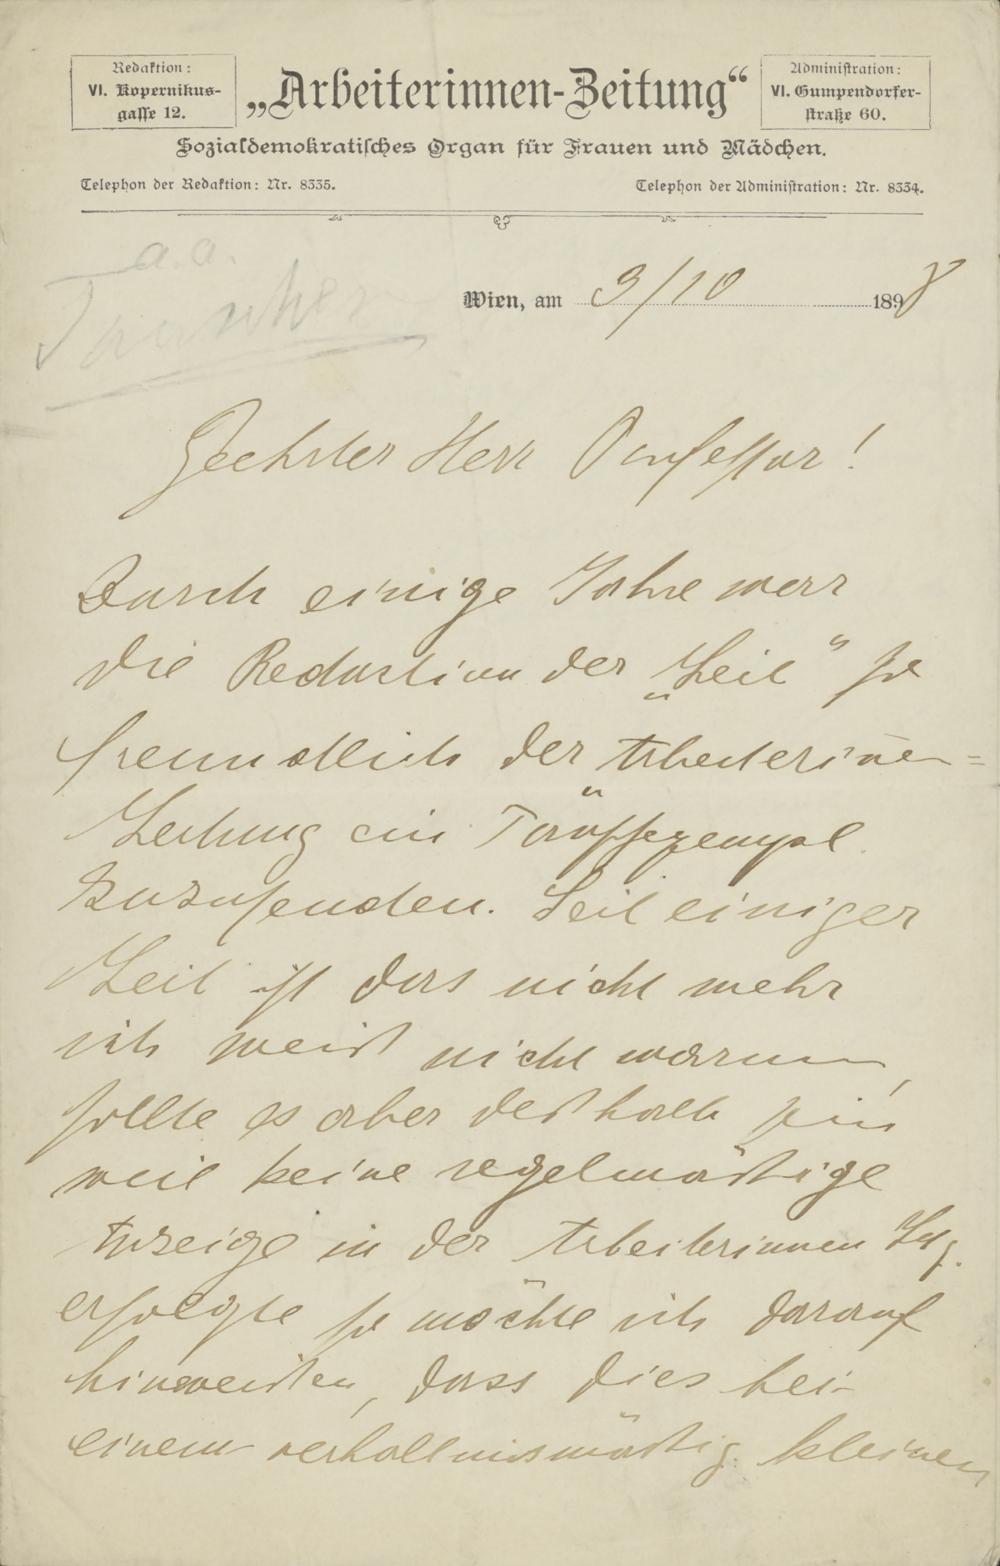 Redaktion:
VI. Kopernikus-
gasse 12.
„Arbeiterinnen-Zeitung“
Administration:
VI. Gumpendorfer-
straße 60.
Sozialdemokratisches Organ für Frauen und Mädchen.
Telephon der Redaktion: Nr. 8335.
Telephon der Administration: Nr. 8334.
a.a.
Wien, am 3/10 1898
Geehrter Herr Professor!
Durch einige Jahre war
die Redaction der „Zeit“ so
freundlich der Arbeiterinen-
Zeitung ein
zuzusenden. Seit einiger
Zeit ist das nicht mehr
ich weiß nicht warum,
sollte es aber deßhalb sein
weil keine regelmäßige
Anzeige in der Arbeiterinnen Ztg.
erfolgte so möchte ich darauf
hinweißen, dass dies bei
einem verhaltnismäßig kleinen